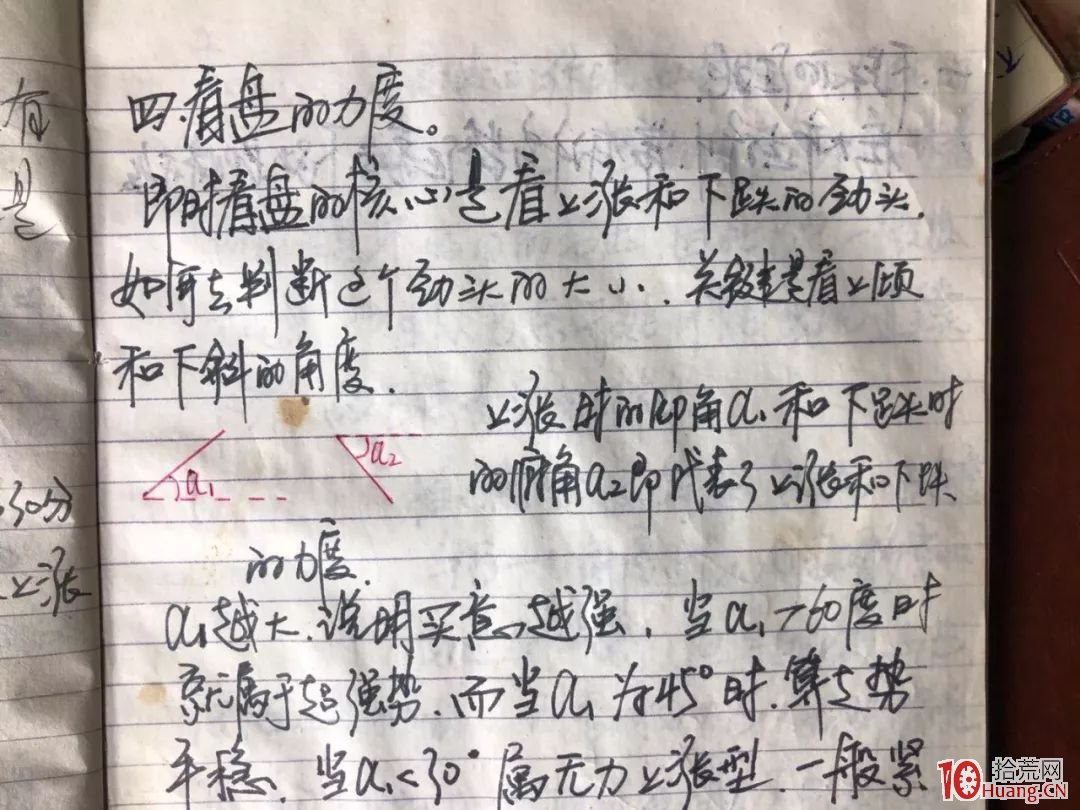 有
是
30分
上涨
四.看盘的力度。
即时看盘的核心是看上涨和下跌的劲头.
如何去判断这个劲头的大小.关键是看上倾
和下斜的角度.
上涨时的仰角a1和下跌时
a1
a2
的俯角a2即代表了上涨和下跌
的力度.
a1越大.说明买意越强.当a1>60度时
就属于超强势.而当a1为45°时.算走势
平稳.当a1<30°属无力上涨型.一般紧
10 拾荒网
Huang.CN